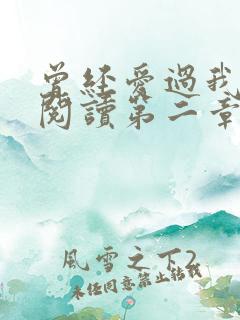 曾經愛過我
閱讀第二章
風雪之下2
未經同意禁止轉載